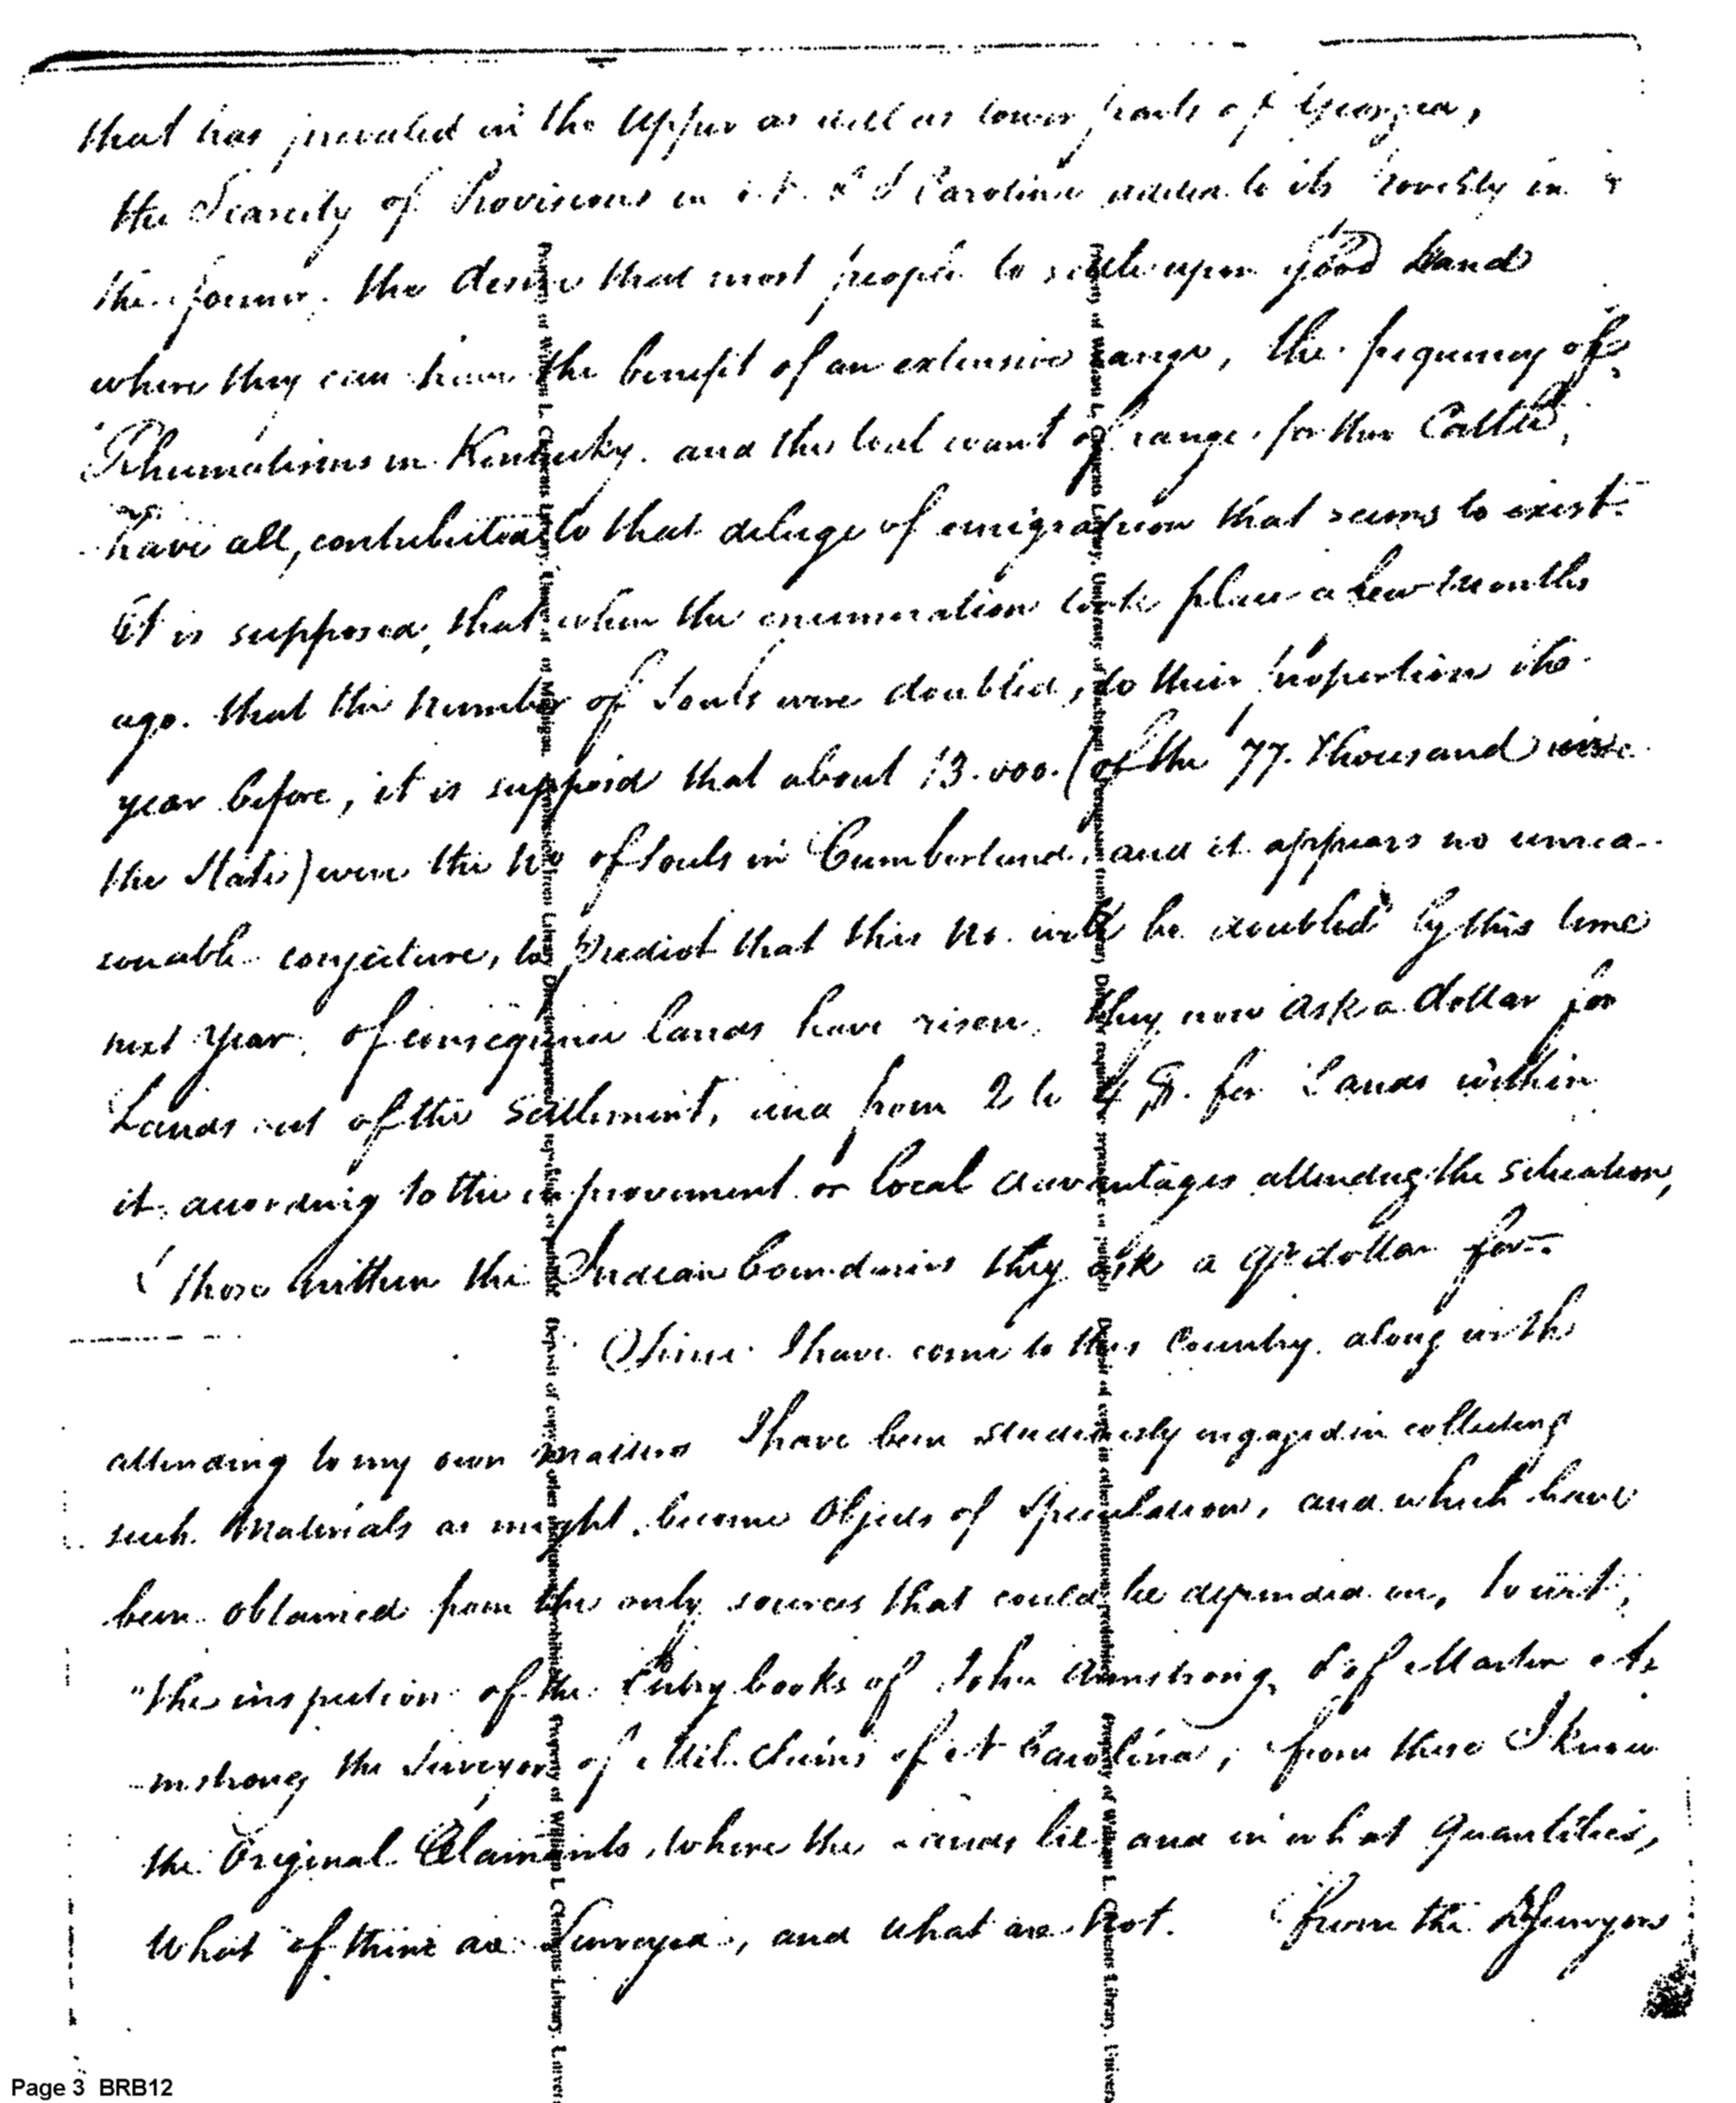 that has prevailed in the Upper as well as lower parts of Georgia,
the Scarcity of Provisions in N. & S Carolina added to its in
the former. the desire that most people to settle upon good Land
where they can have the benefit of an extensive range, the frequency of
Rhumatisms in Kentucky. and the want of range for their Cattle,
have all, contributed to that deluge of emigration that seems to exist.
It is supposed, that when the enumeration took place a few Months
ago. that the number of Souls were doubled, to their proportion the
year before, it is supposed that about 13.000. (of the 77. Thousand in
the State) were the No of Souls in Cumberland, and it appears no unrea-
sonable conjecture, to predict that this No. will be doubled by this time
next year. of consequence lands have risen. they now ask a dollar for
Lands out of the Settlement, and from 2 to 4 $. for Lands within
it, according to the improvement or local advantages attending the situation,
(those within the Indean boundaries they ask a qr dollar for-
Since I have come to this Country. along with
attending to my own matters I have been studiously engaged in collecting
such Materials as might become Objects of Speculation, and which have
been obtained from the only sources that could be depended on, to wit,
"the inspection of the Entry books of John Armstrong, & of Martin Ar
-mstrong the Surveyor of Mil. Claims of N Carolina, from these I know
the Original Claimants, where the Lands lie and in what Quantities,
What of thine are Surveyed, and what are Not. from the Surveyors
Property of William L. Clements Library. University of Michigan. Permission from Library Director required to reproduce or publish. Deposit of copies in other institutions prohibited. Property of William L. Clements Library. Univers
Property of William L. Clements Library, University of Michigan. Permission from Library Director required to reproduce or publish. Deposit of copies in other institutions prohibited. Property of William L. Clements Library. Univers
Page 3 BRB12